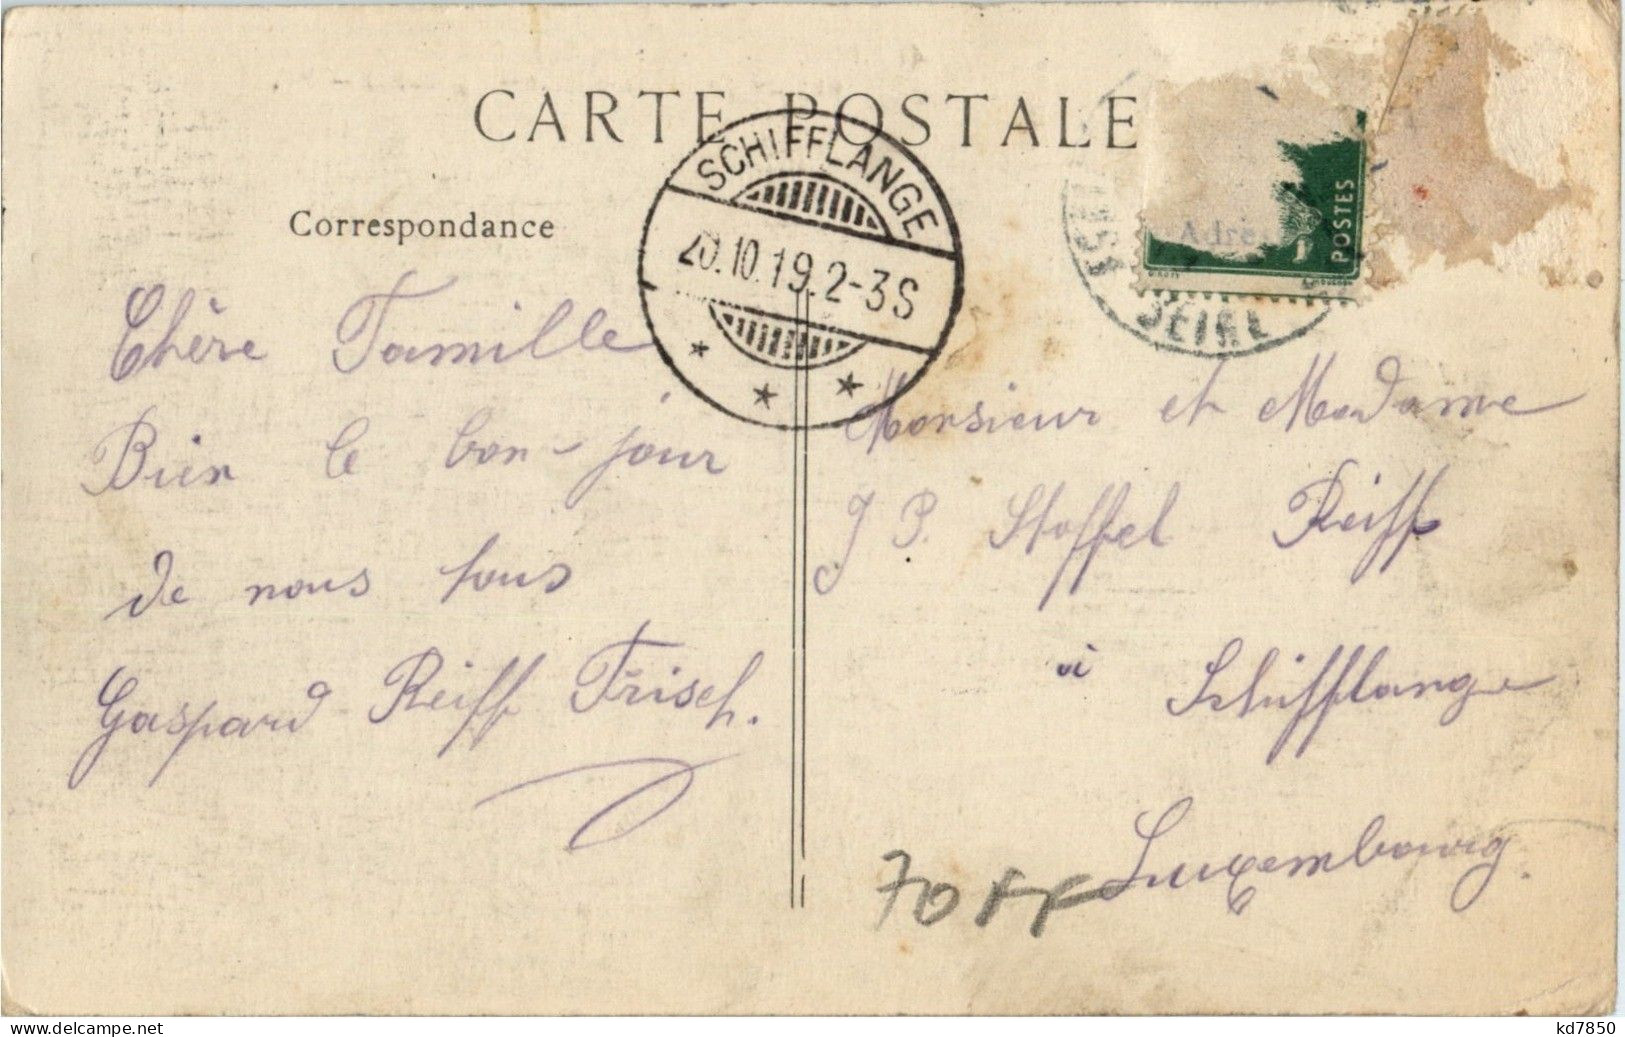 CARTE POSTALE
SCHIFFLANGE
20.10.19.2-3S
Correspondance
POSTES
Chère Famille
Bien le bon-jour
de nous tous
Gaspard Reiff Frisch.
Monsieur et Madame
J P. Stoffel Reiff
à Schifflange
Luxembourg
70
www.delcampe.net
kd7850